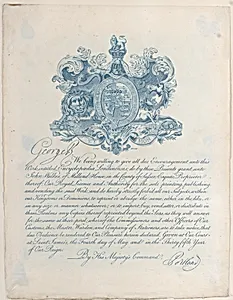 George R.
We being willing to give all due Encouragement unto this
Work, entitled Encyclopædia Londinensis, do by these Presents grant unto
John Wilkes, of Milland House, in the County of Sussex, Esquire, Proprietor
thereof Our Royal Licence and Authority for the sole printing, publishing
and vending the said Work; and do hereby strictly forbid all our Subjects within
our Kingdoms or Dominions to reprint or abridge the same, either in the like, or
in any size or manner whatsoever; or to import, buy, vend, utter, or distribute
any Copies thereof reprinted beyond the Seas, as they will answer
the contrary at their peril, whereof the Commissioners and other Officers of Our
Customs, the Master, Warden, and Company of Stationers, are to take notice, that
due Obedience be rendered to Our Pleasure herein declared. Given at Our Court
at Saint James's, the Fourth day of May 179 in the Thirty fifth Year
of Our Reign.
By His Majesty's Command
Portland